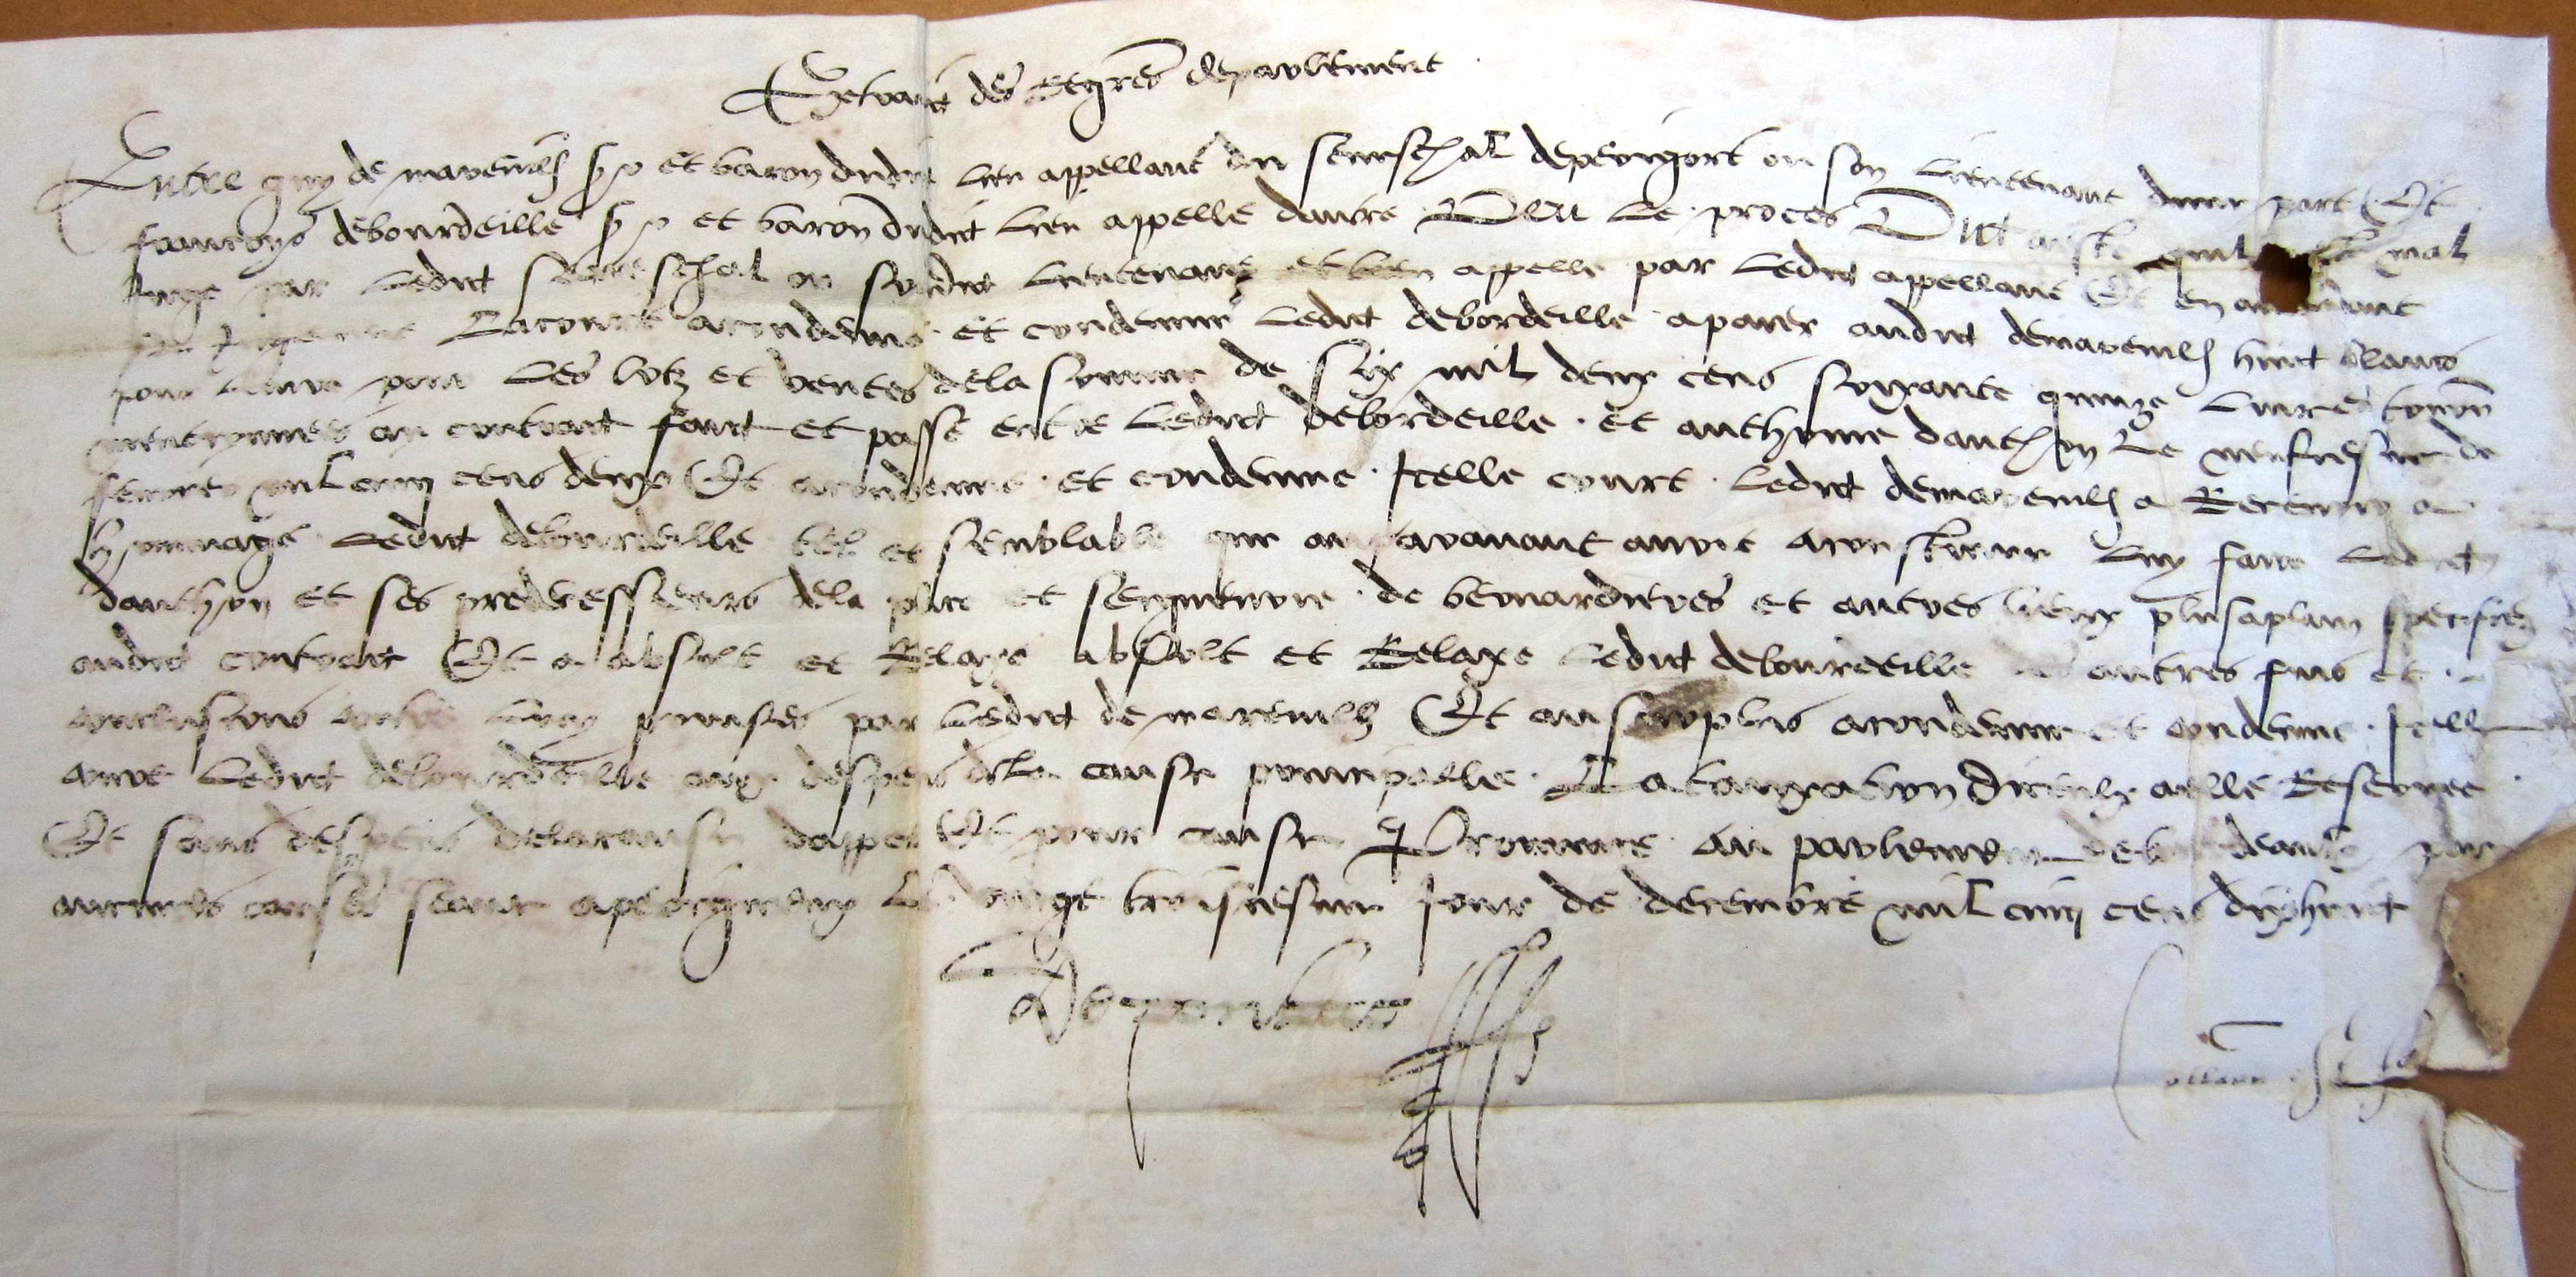 Extraict des Regres deparlement
Entre guy de mareuilh sr et baron dudit lieu appellant du seneschal deperigort ou son lieutenant dune part Et
francoys debourdeille sr et baron dudit lieu appelle dautre Veu le proces Dict a este quil mal
Juge par ledit seneschal ou sondit lieutenant et bien appelle par ledit appellant Et en amendant
Jugement Lacourt acondemne et condemne ledit debordeille apaier audit demareuilh huict blancs
pour livre pour les lotz et ventes dela somme de six mil deux cens soixante quinze livres tourn
mentionnees au contract faict et passe entre ledit debordeille et anthoine danthon le neufiesme de
feurier mil cinq cens deux Et acondemne et condemne Icelle court ledit demareuilh a Recepuoir a
hommage ledit debourdeille tel et semblable que auparavant avoit acoustume luy faire ledit
danthon et ses predecesseurs dela place et seigneurie de bernardieres et autres lieux plusaplain speciffiez
audit contract Et a absolt et Relaxe absolt et Relaxe ledit debourdeille des autres fins et
conclusions contre luy prinses par ledit de mareuilh Et au surplus acondemne et condemne Icelle
court ledit debourdeille aux despens dela cause principalle La tauxation diceulx aelle Reservee
Et sans despens delacause dappel Et pour cause Prononce au parlement debourdeaulx pour
aucunes causes seant aperigueux Le vingt troisiesme Jour de decembre mil cinq cens dixhuict
De pontac
Collation est f